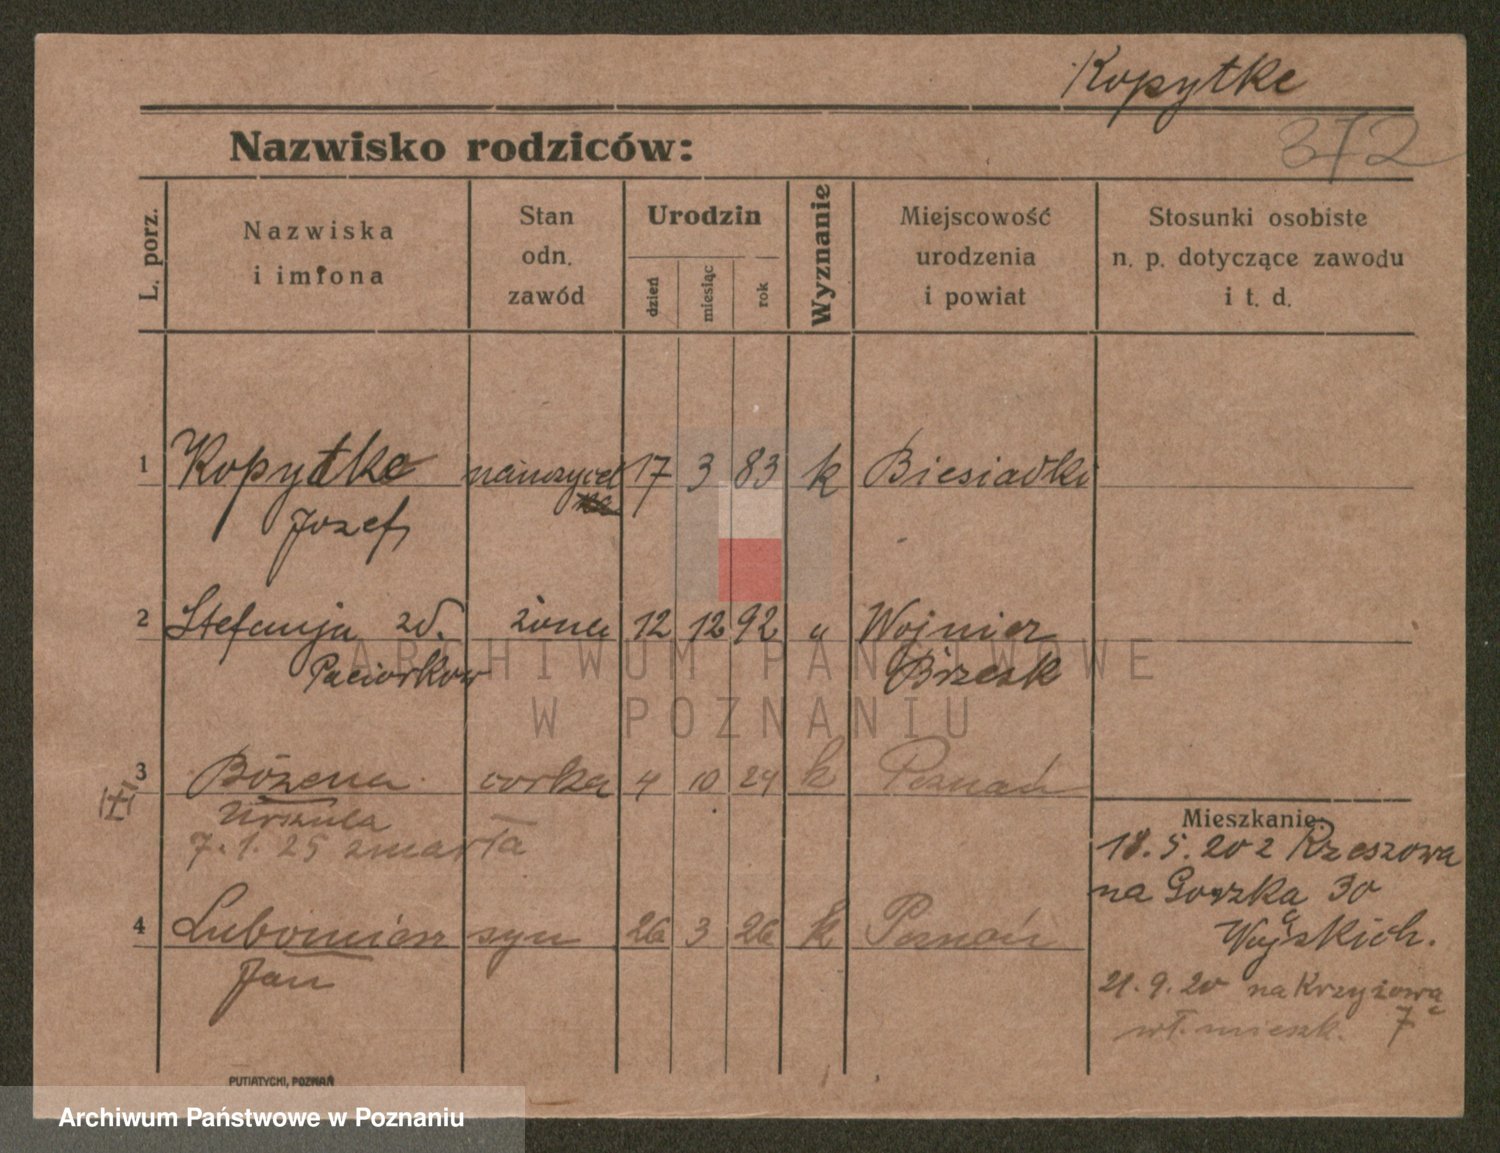 Kopytke
372
Nazwisko rodziców:
L. porz.
Nazwiska
i imiona
Stan
odn.
zawód
Urodzin
dzień
miesiąc
rok
Wyznanie
Miejscowość
urodzenia
i powiat
Stosunki osobiste
n. p. dotyczące zawodu
i t. d.
1 Kopytke nauczyciel 17 3 83 k Biesiadki
Józef
2 Stefanja zd. żona 12 12 92 " Wojnicz
Paciorków Brzesk
ARCHIWUM PAŃSTWOWE
W POZNANIU
3 Bożena córka 4 10 24 k Poznań
Urszula
7. 1. 25 zmarła
Mieszkanie:
18. 5. 20 z Rzeszowa
na Gorzka 30
Wojskich.
4 Lubomierz syn 26 3 26 k Poznań
Jan
21. 9. 20 na Krzyżową 7
wł. mieszk.
PUTIATYCKI, POZNAŃ
Archiwum Państwowe w Poznaniu